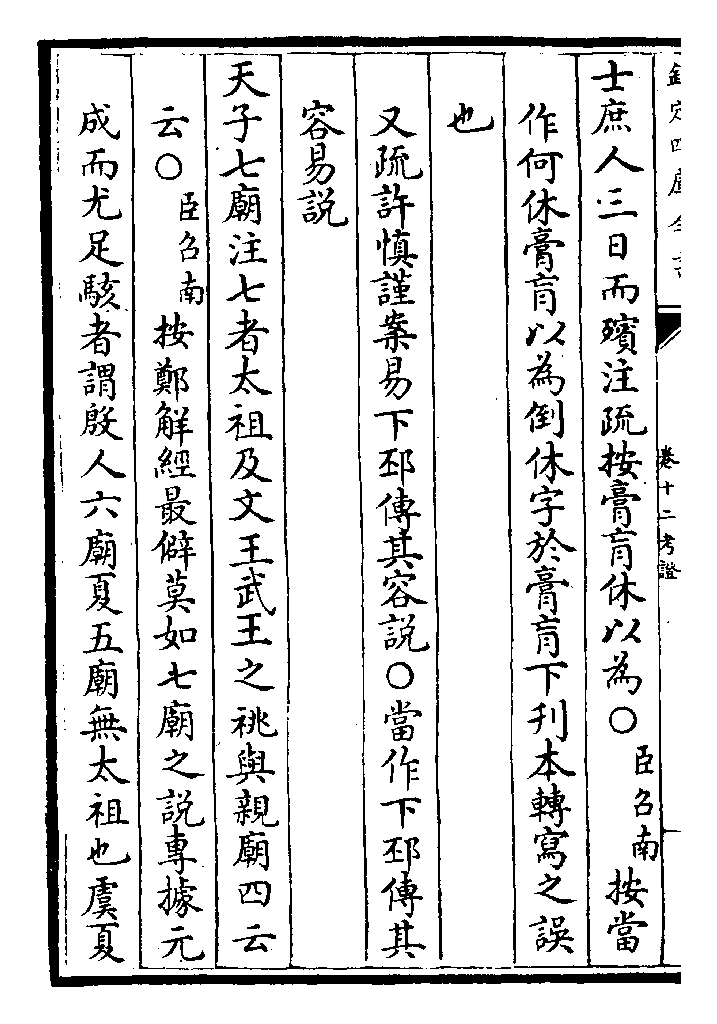 欽定四庫全書
卷十二考證
士庶人三日而殯注疏按膏肓休以為○臣召南按當
作何休膏肓以為倒休字於膏肓下刋本轉寫之誤
也
又疏許慎謹案易下邳傳其容説○當作下邳傳其
容易説
天子七廟注七者太祖及文王武王之祧與親廟四云
云○臣召南按鄭解經最僻莫如七廟之説專據元
成而尤足駭者謂殷人六廟夏五廟無太祖也虞夏